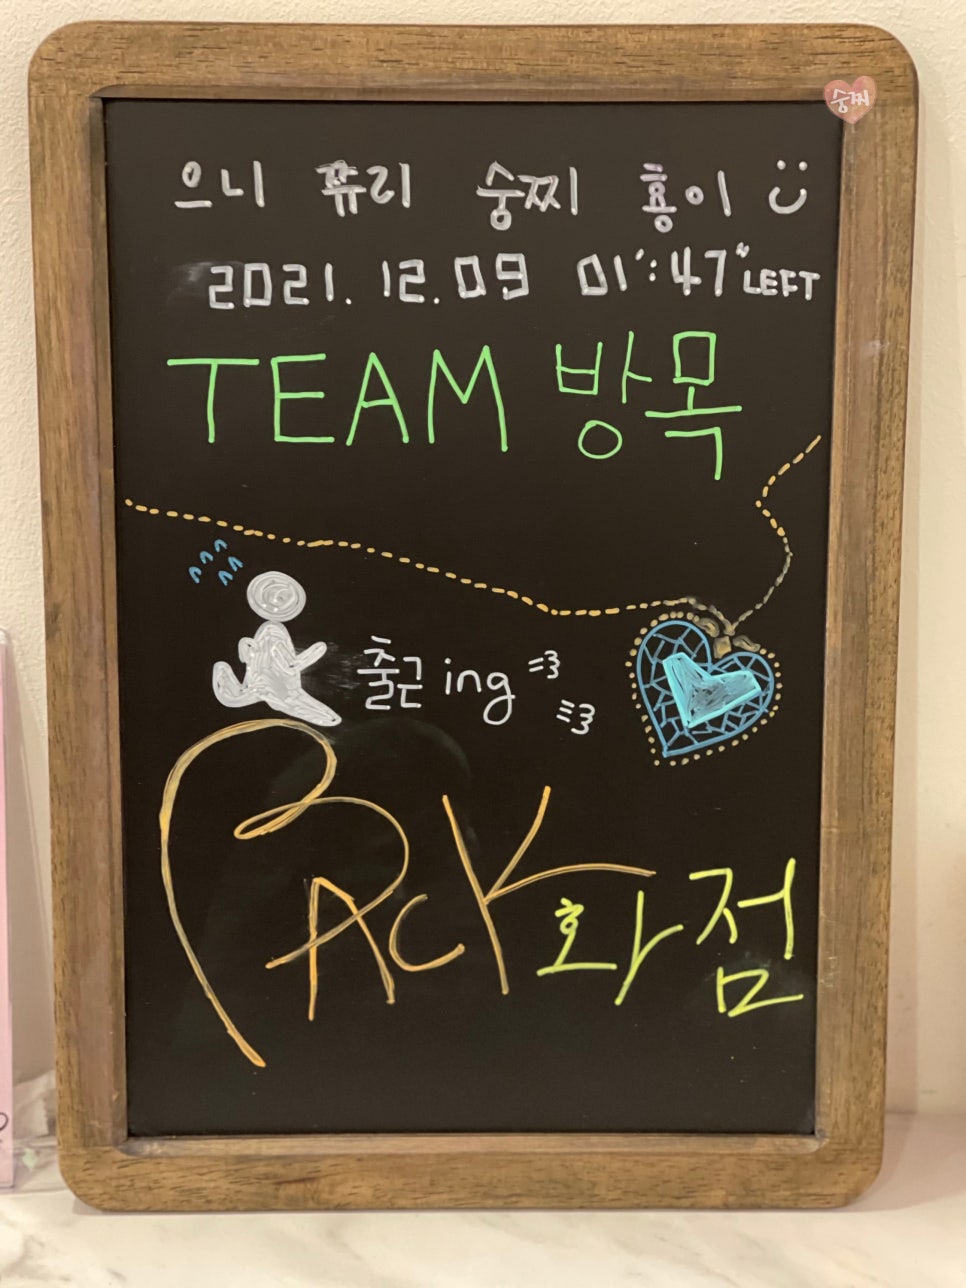 숭찌
으니 퓨리 숭찌 횽이
2021.12.09 01':47" LEFT
TEAM 방목
출근 ing
PACK화점